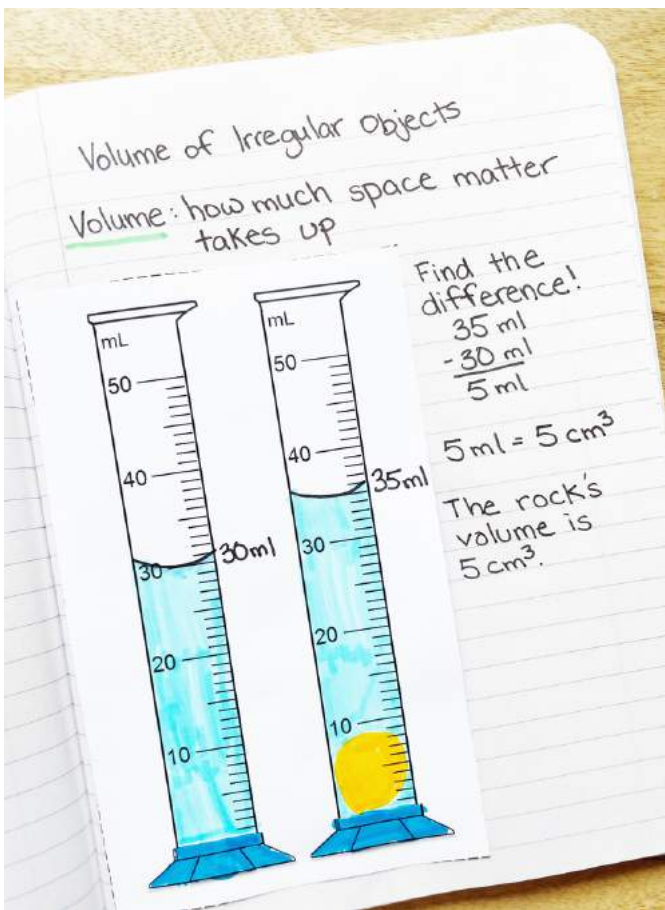 Volume of Irregular Objects
Volume: how much space matter
takes up
Find the
difference!
35 ml
- 30 ml
5 ml
5 ml = 5 cm³
The rock's
volume is
5 cm³.
mL
50
40
30
20
10
30ml
mL
50
40
30
20
10
35ml